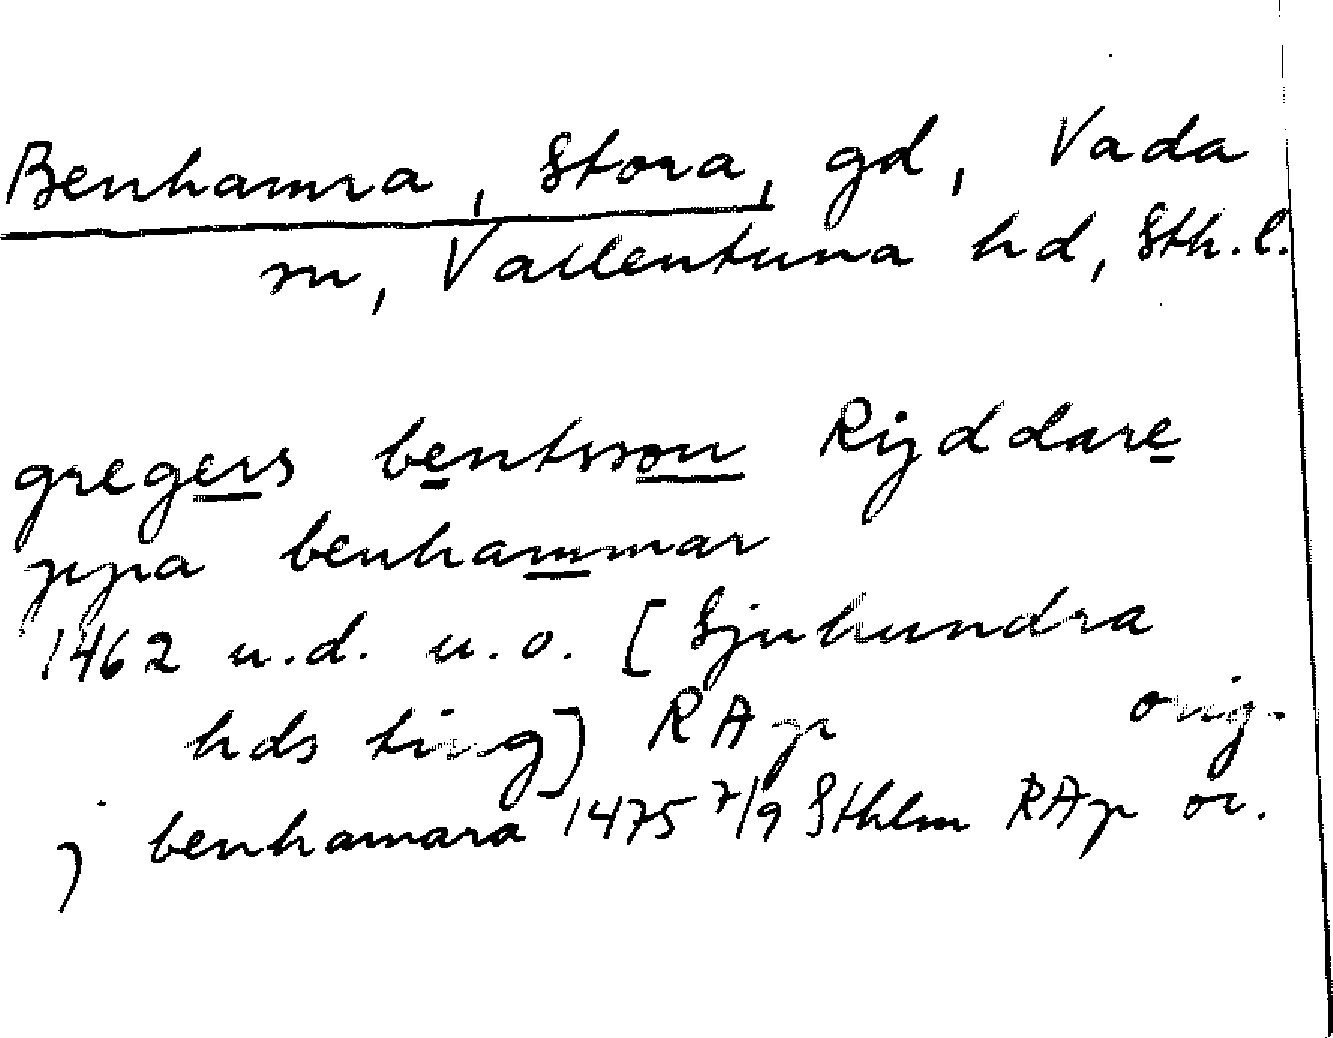 Benhamra, Stora, gd, Vada
sn, Vallentuna hd, Sth. l.
gregers bentsson Rijddare
ppa benhammar
1462 u.d. u.o. [Sjuhundra
hds ting] RAp orig.
j benhamara 1475 7/9 Sthlm RAp or.